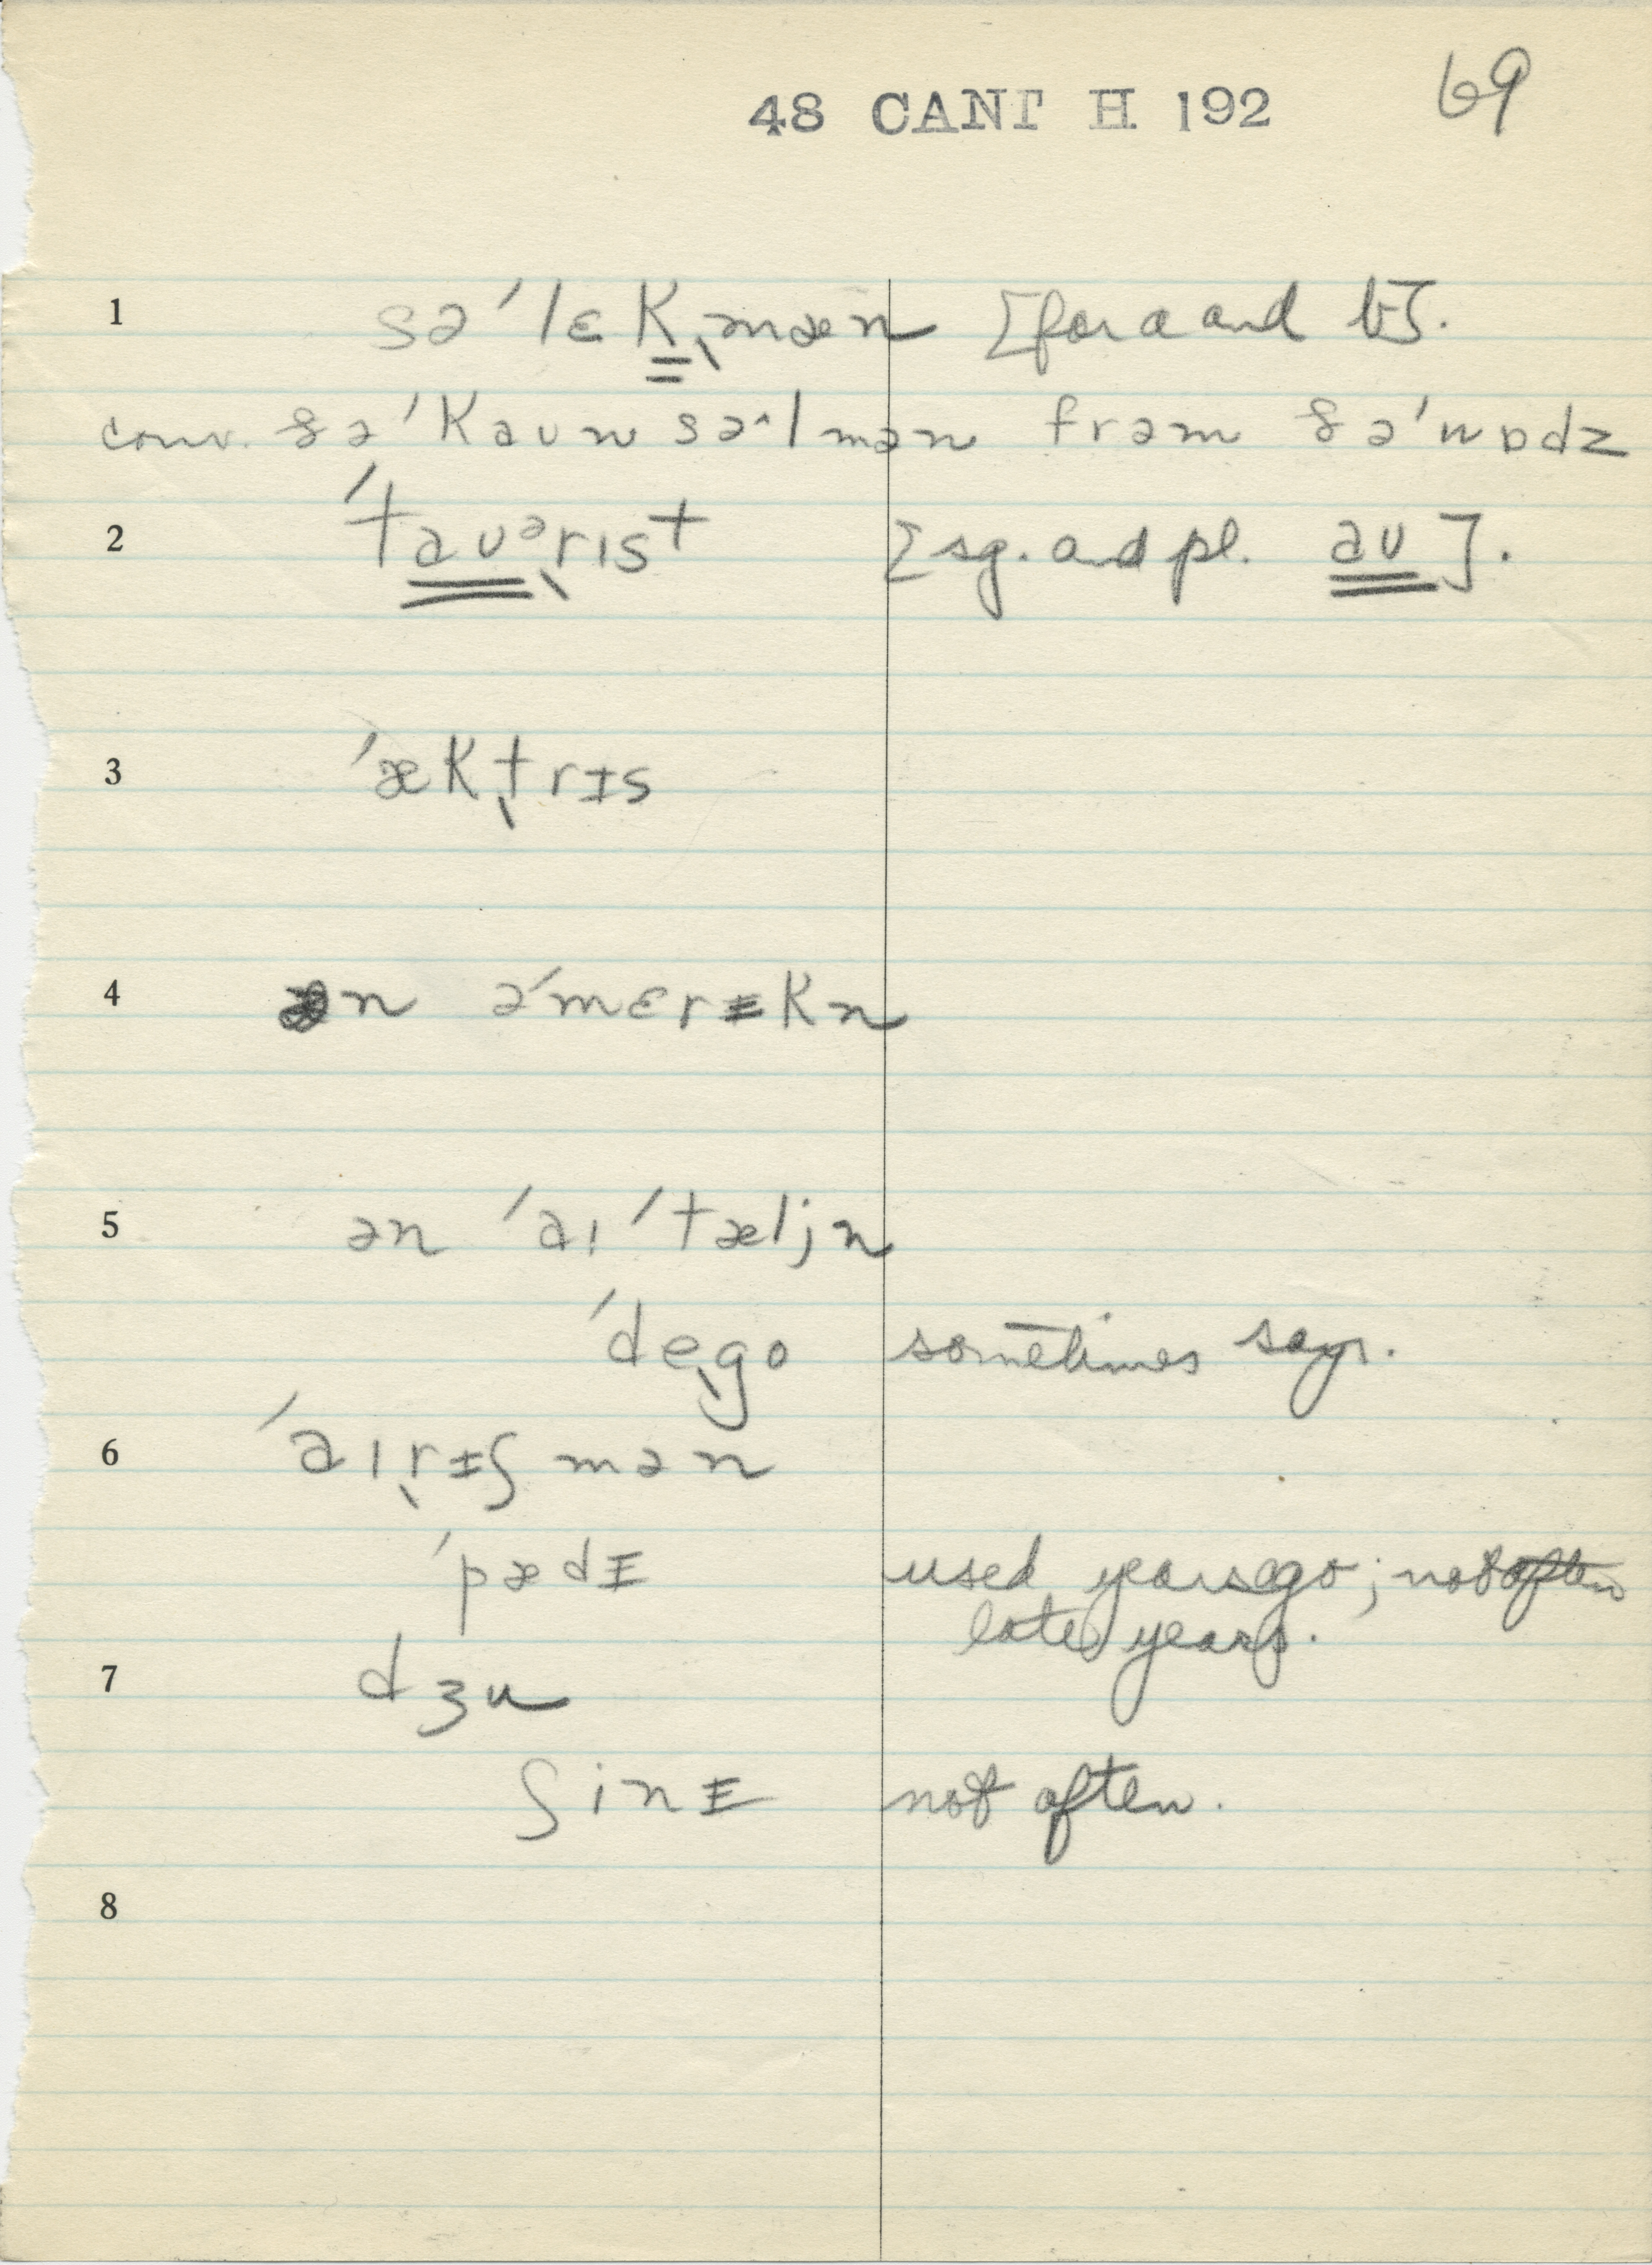 48 CANT H 192 69
1 sə′lɛKˎmæn [for a and b].
conv. ðə′Kaunsəˆlmən frəm ðə′wɒdz
2 ′tauᵊˎrɪst [sg. and pl. au].
3 ′æKtˎrᵻs
4 ən ə′mɛrᵻKn
5 ən ′aɪ′tæljn
′deˎgo sometimes says.
6 ′aɪˎrᵻʃmən
′pædᵻ used years ago; not often
late years.
7 dʒu
ʃinᵻ not often.
8